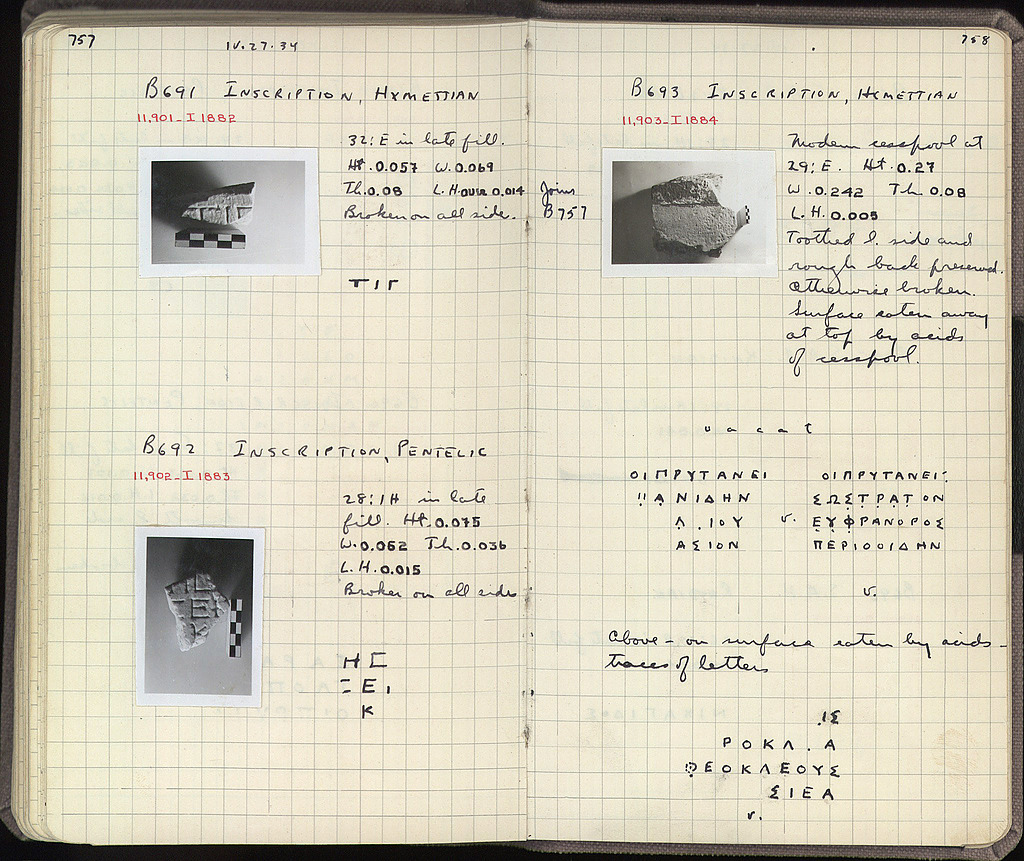 757
IV.27.34
B691 INSCRIPTION, HYMETTIAN
11,901-I 1882
32:E in late fill.
Ht. 0.057 W. 0.069
Th. 0.08 L.H. over 0.014
Broken on all side.
ΤΙΓ
B692 INSCRIPTION, PENTELIC
11,902-I 1883
28:IH in late
fill. Ht. 0.075
W. 0.062 Th. 0.036
L.H. 0.015
Broken on all sides
Κ
758
B693 INSCRIPTION, HYMETTIAN
11,903-I 1884
Joins
B757
Modern cesspool at
29:E. Ht. 0.27
W. 0.242 Th. 0.08
L.H. 0.005
Toothed l. side and
rough back preserved.
Otherwise broken.
Surface eaten away
at top by acids
of cesspool.
v a c a t
ΟΙΠΡΥΤΑΝΕΙ ΟΙΠΡΥΤΑΝΕΙ
ΑΝΙΔΗΝ ΣΩΣΤΡΑΤΟΝ
Λ . ΙΟΥ v. ΕΥΦΡΑΝΟΡΟΣ
ΑΣΙΟΝ ΠΕΡΙΘΟΙΔΗΝ
v.
Above - on surface eaten by acids -
traces of letters
ΙΣ
ΡΟΚΛ . Α
ΘΕΟΚΛΕΟΥΣ
ΣΙΕΑ
v.